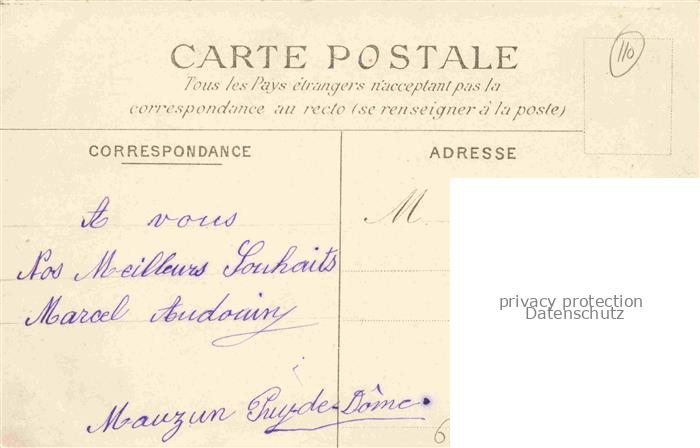 110
CARTE POSTALE
Tous les Pays étrangers n'acceptant pas la
correspondance au recto (se renseigner à la poste)
CORRESPONDANCE
ADRESSE
M
A vous
Nos Meilleurs Souhaits
Marcel Audouin
Mauzun Puy-de-Dôme.
6
privacy protection
Datenschutz